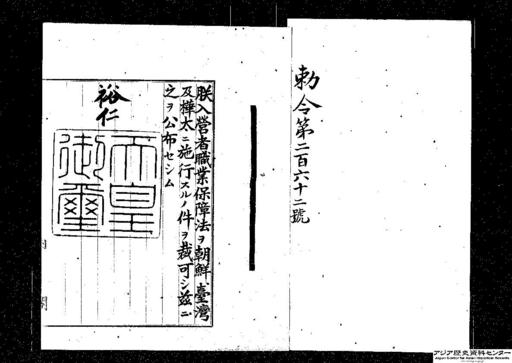 勅令第二百六十二號
朕入營者職業保障法ヲ朝鮮臺灣
及樺太ニ施行スルノ件ヲ裁可シ茲ニ
之ヲ公布セシム
裕仁
天皇
御璽
アジア歴史資料センター
Japan Center for Asian Historical Records